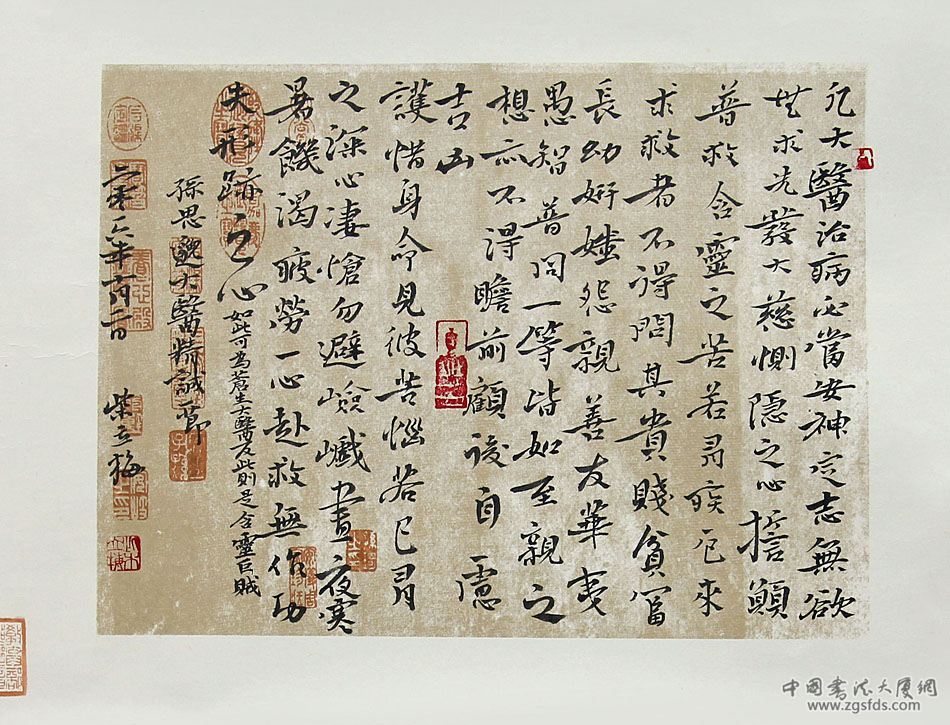 凡大醫治病必當安神定志無欲
無求先發大慈惻隱之心誓願
普救含靈之苦若有疾厄來
求救者不得問其貴賤貧富
長幼妍媸怨親善友華夷
愚智普同一等皆如至親之
想亦不得瞻前顧後自慮
吉凶
護惜身命見彼苦惱若己有
之深心凄愴勿避嶮巇晝夜寒
暑饑渴疲勞一心赴救無作功
夫形跡之心
如此可為蒼生大醫反此則是含靈巨賊
孫思邈大醫精誠一節
柴立梅
中国書法大厦網
www.zgsfds.com